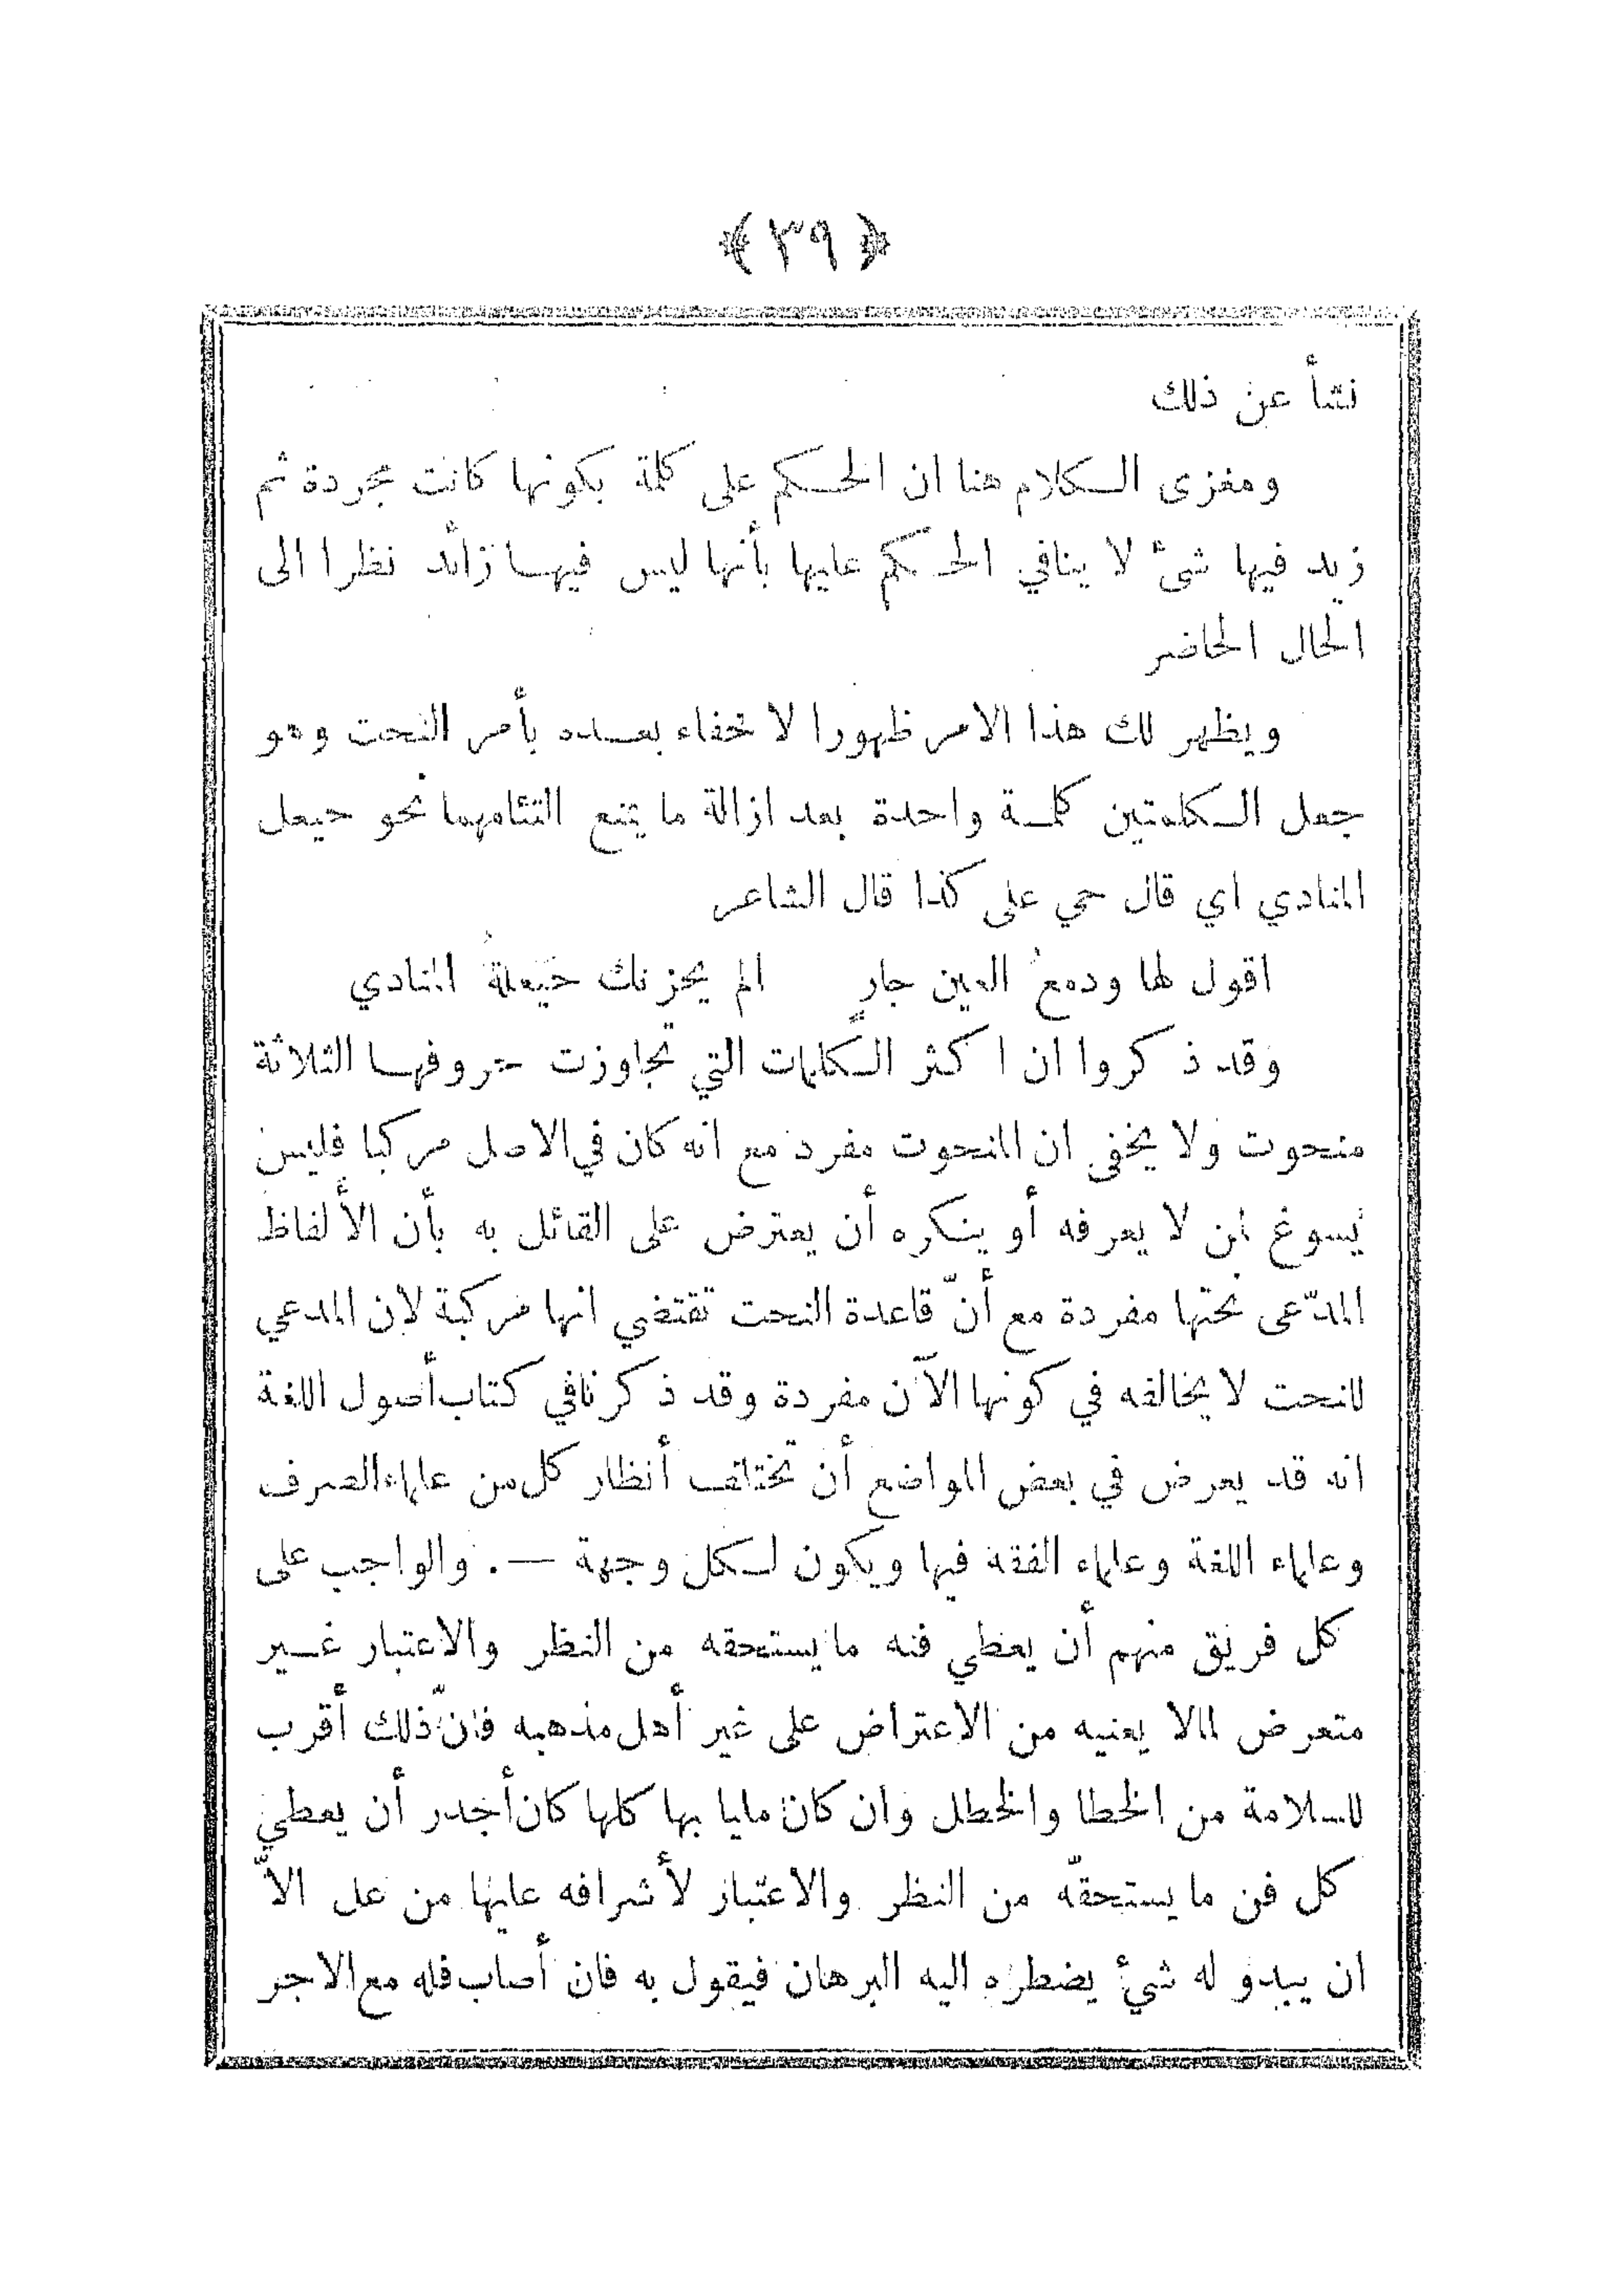 ﴿ ٣٩ ﴾
نشأ عن ذلك
ومغزى الكلام هنا ان الحكم على كلمة بكونها كانت مجردة ثم
زيد فيها شئ لا ينافي الحكم عليها بأنها ليس فيها زائد نظرا الى
الحال الحاضر
ويظهر لك هذا الامر ظهورا لا خفاء بعده بأمر النحت وهو
جعل الكلمتين كلمة واحدة بعد ازالة ما يمنع التئامهما نحو حيعل
المنادي اي قال حي على كذا قال الشاعر
اقول لها ودمعُ العين جارٍ الم يحزنك حَيْعلةُ المنادي
وقد ذكروا ان اكثر الكلمات التي تجاوزت حروفها الثلاثة
منحوت ولا يخفى ان المنحوت مفرد مع انه كان في الاصل مركبا فليس
يسوغ لمن لا يعرفه أو ينكره أن يعترض على القائل به بأن الألفاظ
المدّعى نحتها مفردة مع أنّ قاعدة النحت تقتضي انها مركبة لان المدعي
للنحت لا يخالفه في كونها الآن مفردة وقد ذكرنا في كتاب أصول اللغة
انه قد يعرض في بعض المواضع أن تختلف أنظار كل من علماء الصرف
وعلماء اللغة وعلماء الفقه فيها ويكون لكل وجهة —. والواجب على
كل فريق منهم أن يعطي فنه ما يستحقه من النظر والاعتبار غير
متعرض لما لا يعنيه من الاعتراض على غير أهل مذهبه فانّ ذلك أقرب
للسلامة من الخطا والخطل وان كان مليا بها كلها كان أجدر أن يعطي
كل فن ما يستحقّه من النظر والاعتبار لأشرافه عليها من عل الاّ
ان يبدو له شيء يضطره اليه البرهان فيقول به فان أصاب فله مع الاجر